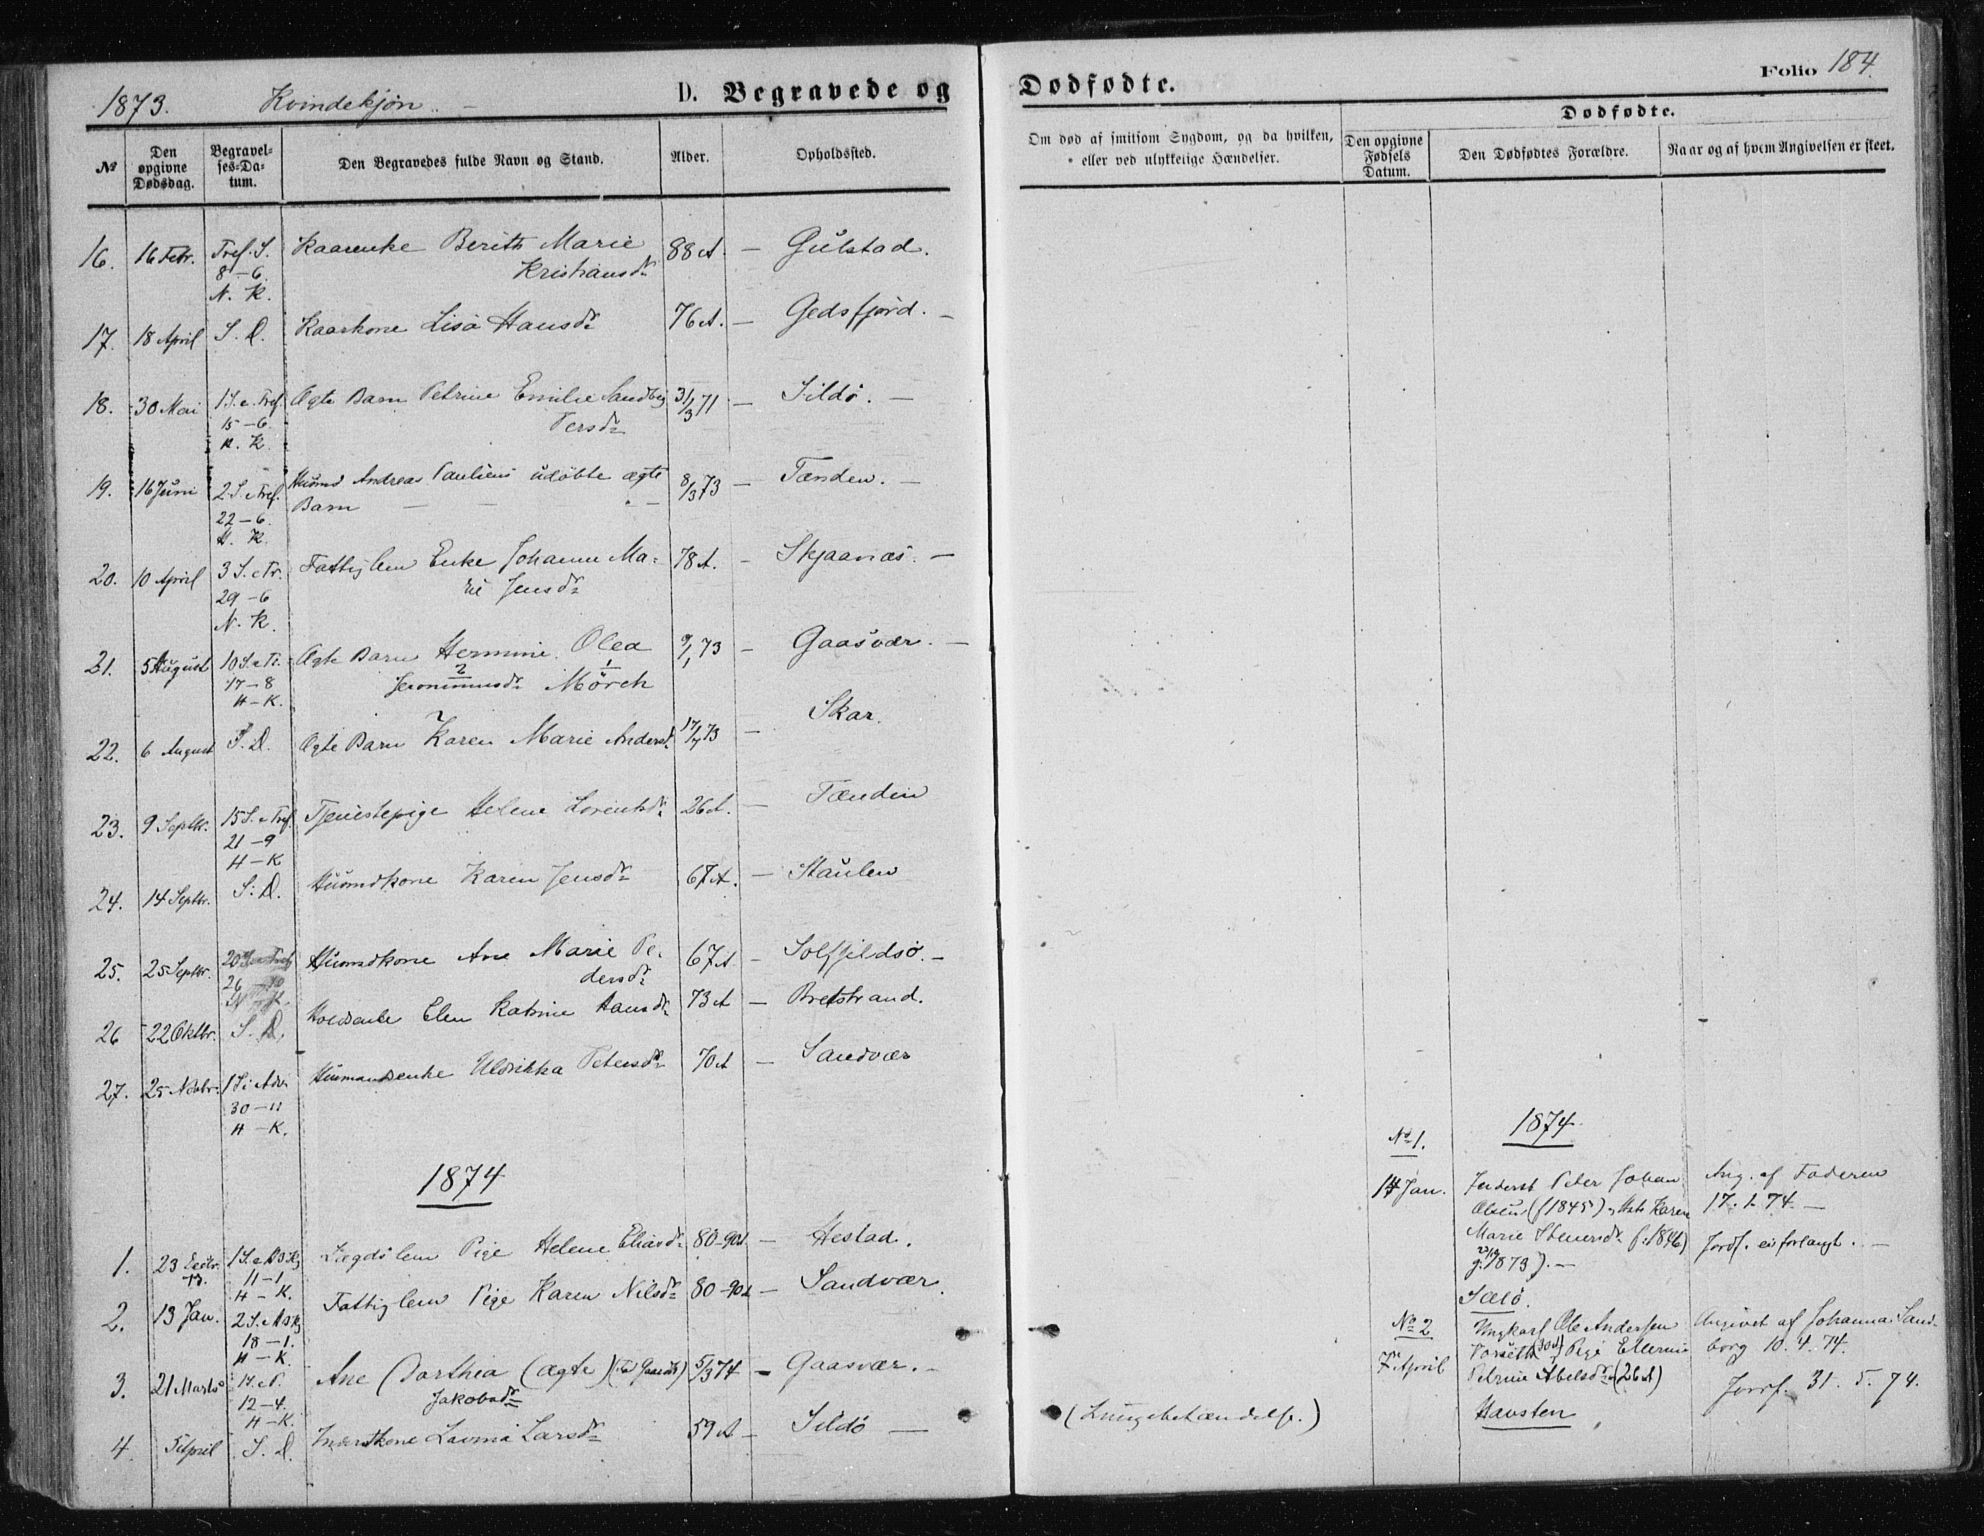 1873. Kvindekjøn. D. Begravede og
Dødfødte. Folio 184.
№ Den opgivne Dødsdag. Begravel-ses-Da-tum. Den Begravedes fulde Navn og Stand. Alder. Opholdssted.
Om død af smitsom Sygdom, og da hvilken, eller ved ulykkelige Hændelser.
Dødfødte.
Den opgivne Fødsels Datum. Den Dødfødtes Forældre. Naar og af hvem Angivelsen er skeet.
16. 16 Febr. Tref. S. Kaarenke Berith Marie 88 A. — Gulstad.
8-6 Kristiansdr
N. K.
17. 18 April S. D. Kaarkone Lisa Hansdr 76 A. — Gedsfjord. —
18. 30 Mai 1 S. e. Tref. Ægte Barn Petrine Emilie Sandberg 31/3 71 — Sildø. —
15-6. Persdr
N. K.
19. 16 Juni 2 S. e. Tref. Husmd Andreas Pauliens udøbte ægte 8/3 73 — Tænden. —
22-6. Barn — —
H. K.
20. 10 April 3 S. e. Tr. Fattiglem Enke Johanne Ma- 78 A. — Skjaanæs. —
29-6 rie Jensdr
N. K.
21. 5 August 10 S. e. Tr. Ægte Barn Hermine Olea 9/1 73 — Gaasvær. —
17-8 2 1
Jeronimusdr Mørch
H-K.
22. 6 August S. D. Ægte Barn Karen Marie Andersdr 17/7 73 — Skar.
23. 9 Septbr. 15 S. e. Tref. Tjenestepige Helene Lorentsdr 26 A. — Tænden
21-9
H-K
24. 14 Septbr. S. D. Husmdkone Karen Jensdr 67 A. — Staulen
25. 25 Septbr. Husmdkone Ane Marie Pe- 67 A. — Solfjeldsø. —
26 dersdr
26 22 Oktbr. S. D. Elen Katrine Hansdr 73 A — Bretstrand.
27. 25 Novbr. 1 S. i Adv. Husmandsenke Uldrikka Petersdr 70 A — Sandvær
30-11
H-K.
1874
1. 23 Decbr. 73. Lægdslem Pige Helene Eliasdr 80-90 A. — Hestad.
11-1
H-K.
2. 13 Jan. Fattiglem Pige Karen Nilsdr 80-90 A. — Sandvær.
18-1.
H-K.
3. 21 Marts Ane Dorthea (ægte) 5/3 74 — Gaasvær. —
12-4. Jakobsdr
H-K.
4. 5 April S. D. Inderstkone Lavina Larsdr 59 A — Sildø —
(Lungebetændelse.)
1874.
No 1.
14 Jan. Inderst Peter Johan Ang. af Faderen
Olsen (f 1845) og Hst. Karen 17. 1. 74. —
Marie Stensdr f. 1846) Jordf. ei forlangt. —
g. 1873). —
Sælø.
No 2 Ungkarl Ole Andersen Angivet af Johanna Sand-
7de April (30 A) Pige Ellerine borg 10. 4. 74.
Petrine Abelsdr (26 A) Jordf. 31. 5. 74.
Havsten